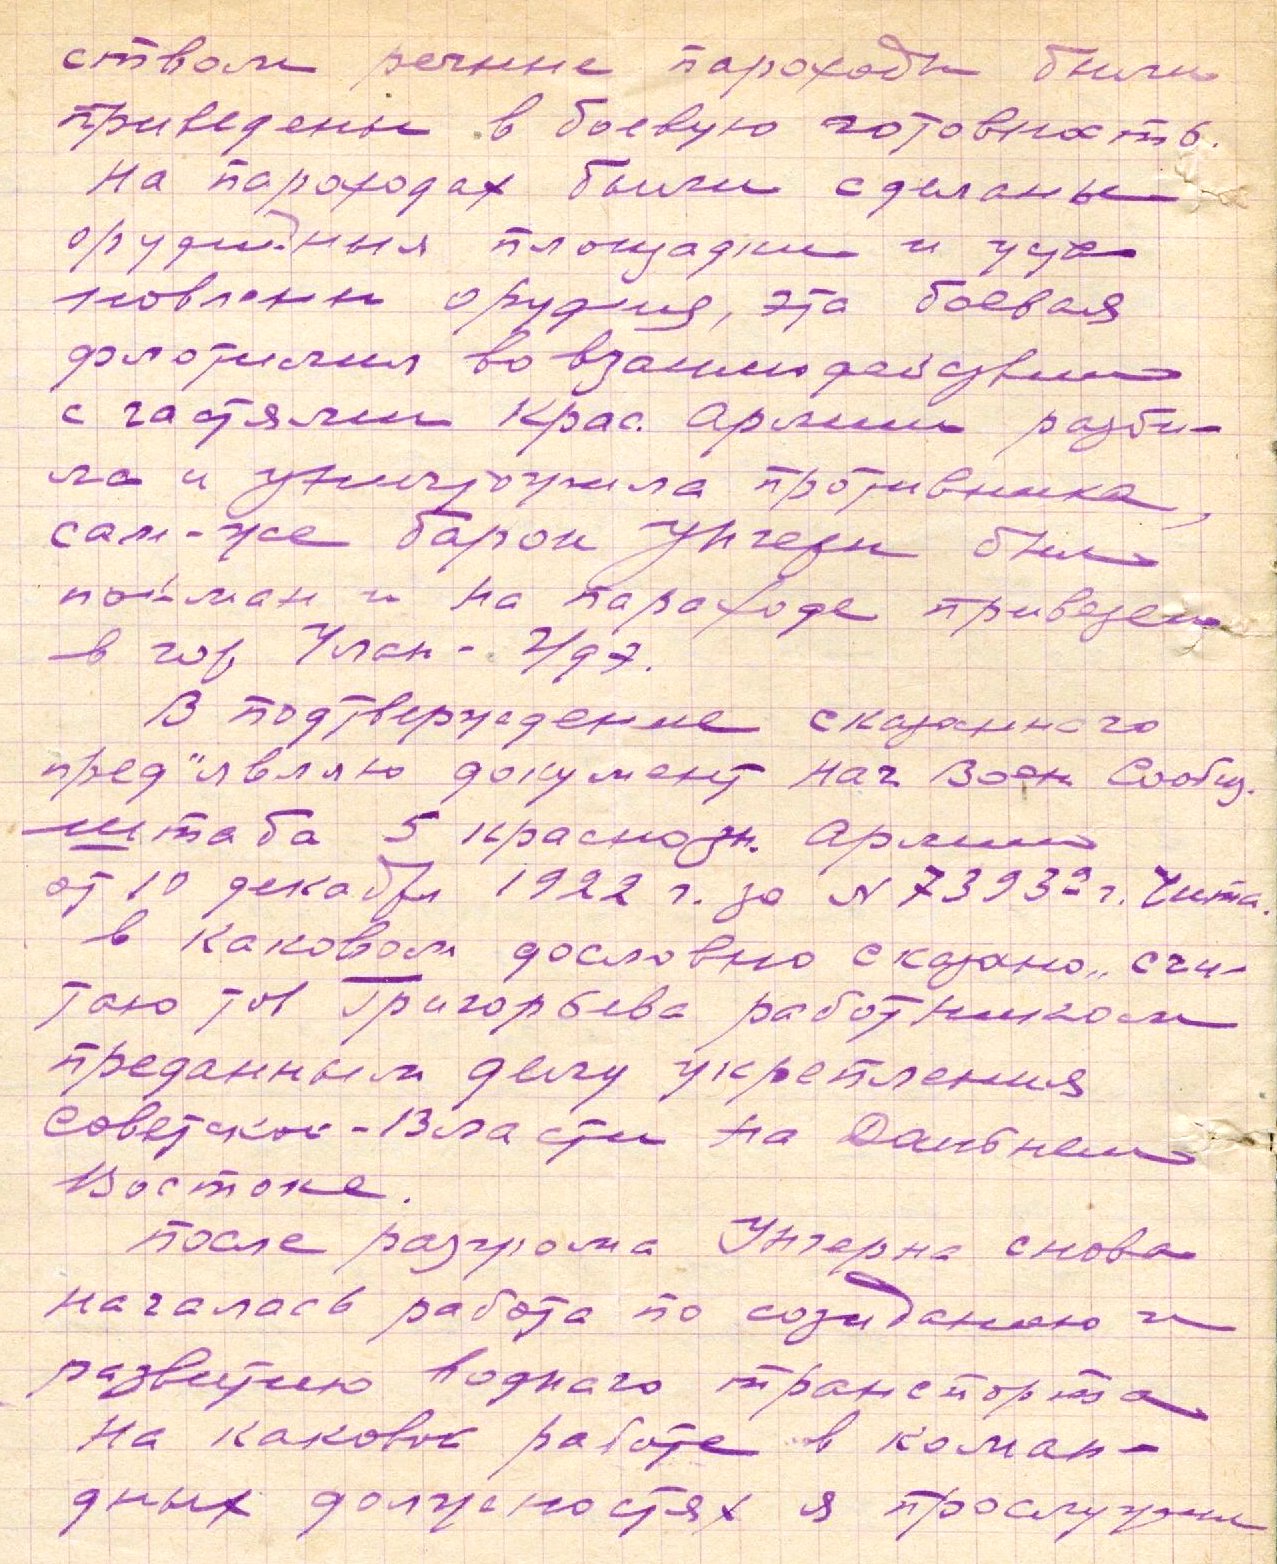 ством речние пароходы были
приведены в боевую готовность.
На пароходах были сделаны
орудийныя площадки и уста
новлены орудия, эта боевая
флотилия во взаимодействии
с частями Крас. Армии разби-
ла и уничтожила противника,
сам-же барон Унгерн был
пойман и на пароходе привезен
в гор Улан-Удэ.
В подтверждение сказаннаго
пред"являю документ Нач Воен Сообщ.
штаба 5 краснозн. Армии
от 10 декабря 1922 г. за N 7393 г. Чита.
в каковом дословно сказано „счи-
таю тов Григорьева работником
преданным делу укрепления
Советской-Власти на Дальнем
Востоке.
После разгрома Унгерна снова
началась работа по созиданию и
развитию воднаго транспорта
На каковой работе в коман-
дных должностях я прослужил